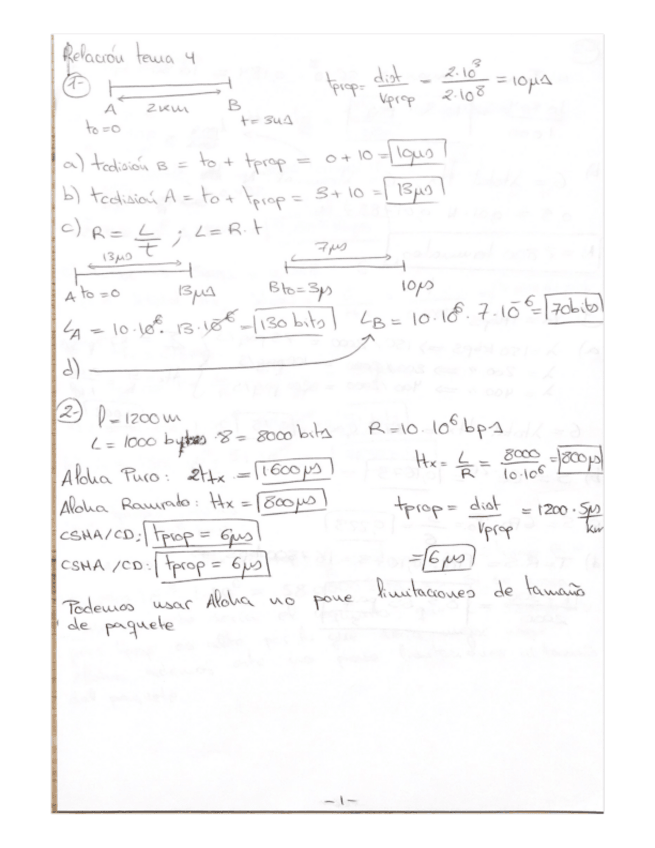 Relación tema 4
1- A 2km B tprop = dist / Vprop = 2·10³ / 2·10⁸ = 10μs
to=0 t=3μs
a) tcolisión B = to + tprop = 0+10 = 10μs
b) tcolisión A = to + tprop = 3+10 = 13μs
c) R = L / t ; L = R·t
13μs 7μs
A to=0 13μs B to=3μs 10μs
LA = 10·10⁶ · 13·10⁻⁶ = 130 bits LB = 10·10⁶ · 7·10⁻⁶ = 70bits
d)
2- l = 1200 m
L = 1000 bytes ·8 = 8000 bits R = 10·10⁶ bps
Aloha Puro: 2Htx = 1600μs Htx = L / R = 8000 / 10·10⁶ = 800μs
Aloha Ranurado: Htx = 800μs
CSMA/CD: tprop = 6μs tprop = dist / Vprop = 1200 · 5μs / km
CSMA /CD: tprop = 6μs = 6μs
Podemos usar Aloha no pone limitaciones de tamaño
de paquete
-1-